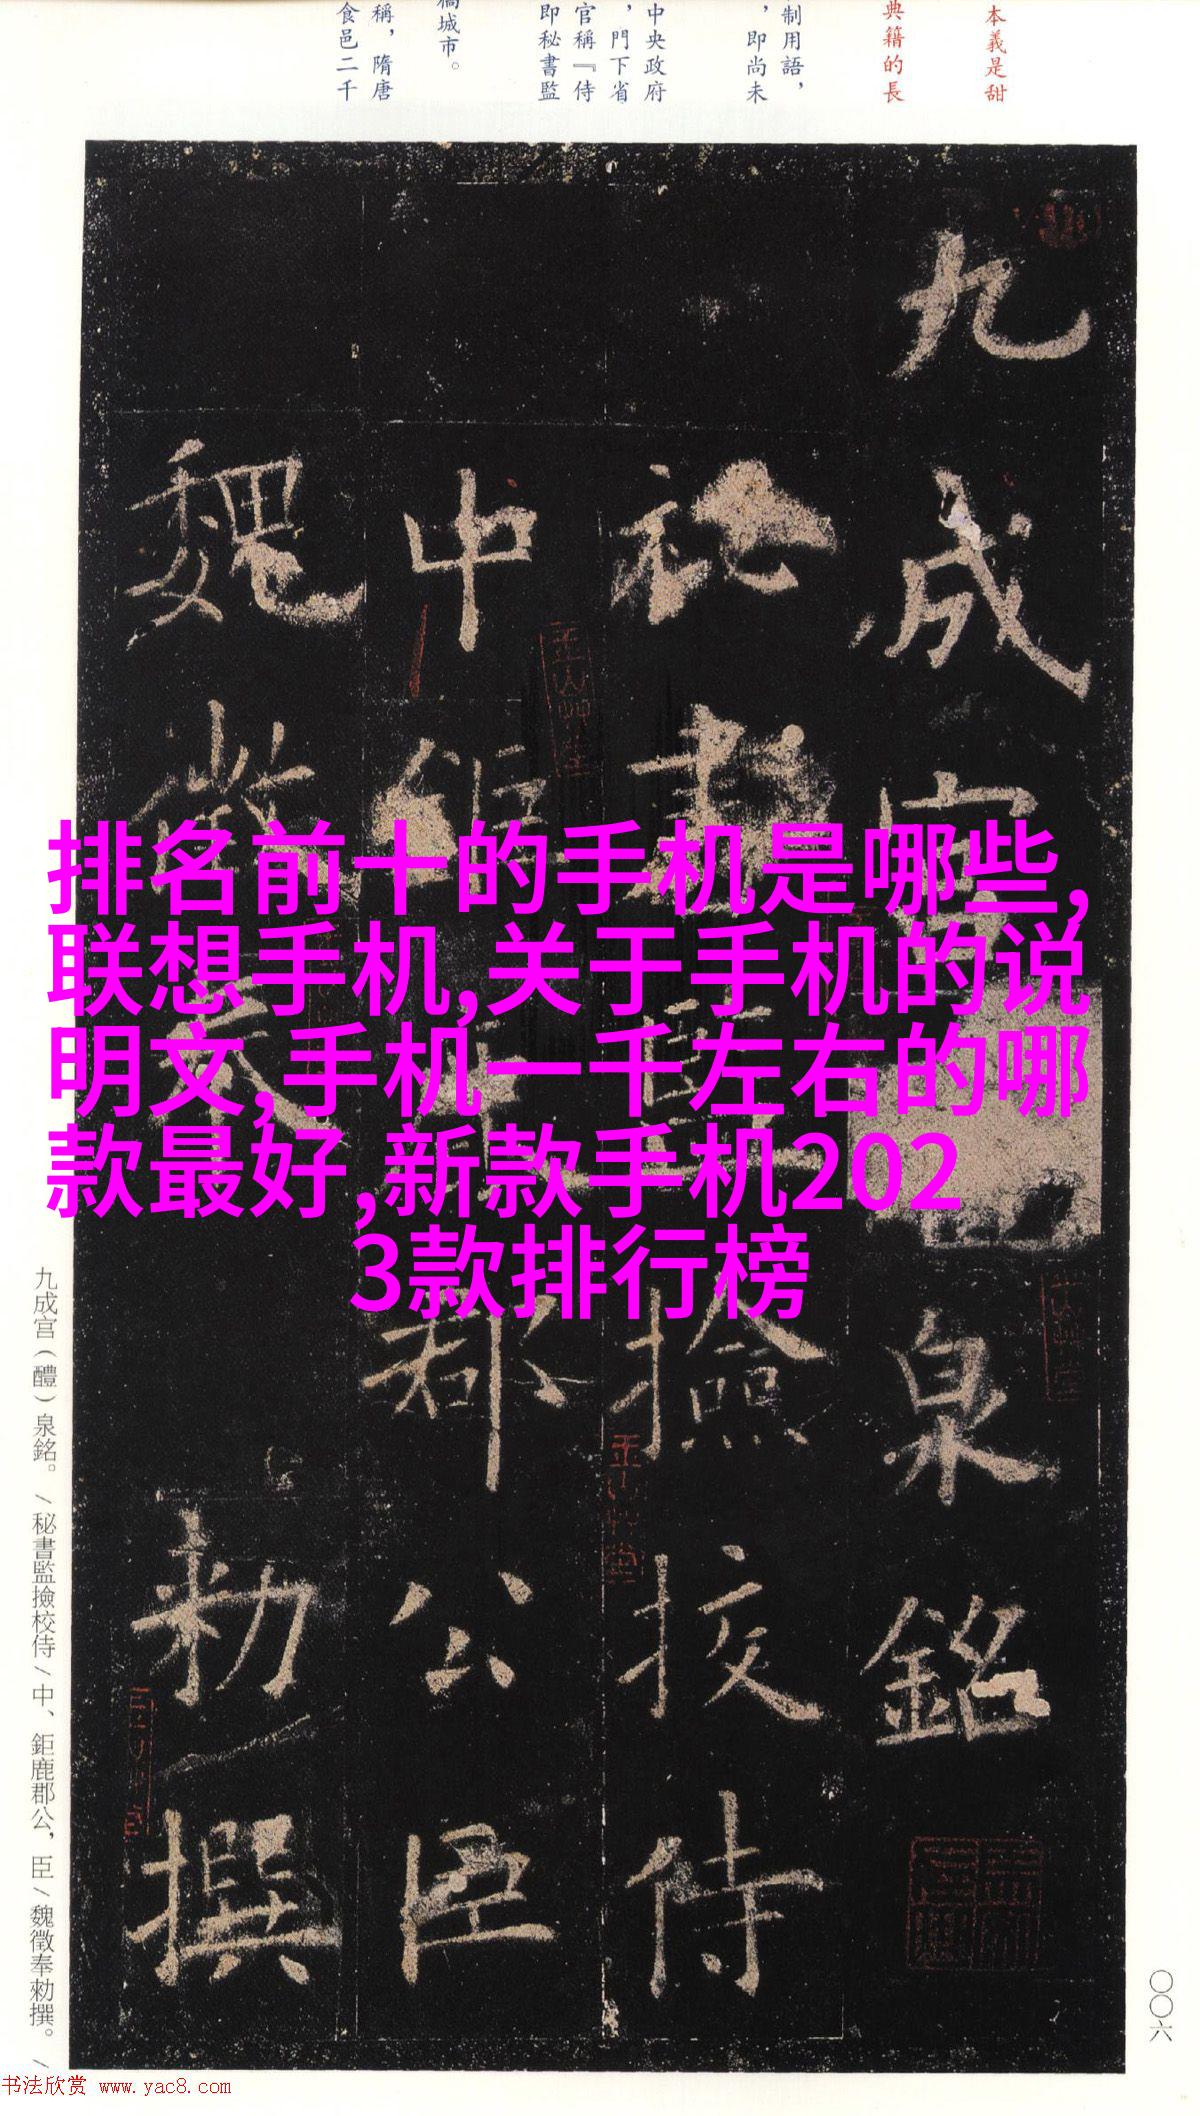 本義是甜
典籍的長
制用語，
，即尚未
中央政府
，門下省
官稱『侍
即秘書監
城市。
稱，隋唐
食邑二千
九成宮
泉銘
祕書
撿挍侍
中
郡公臣
魏徵奉
勑撰
排名前十的手机是哪些,
联想手机,关于手机的说
明文,手机一千左右的哪
款最好,新款手机202
3款排行榜
九成宮（醴）泉銘。/秘書監撿校侍/中、鉅鹿郡公，臣/魏徵奉勑撰。/
〇〇六
书法欣赏 www.yac8.com